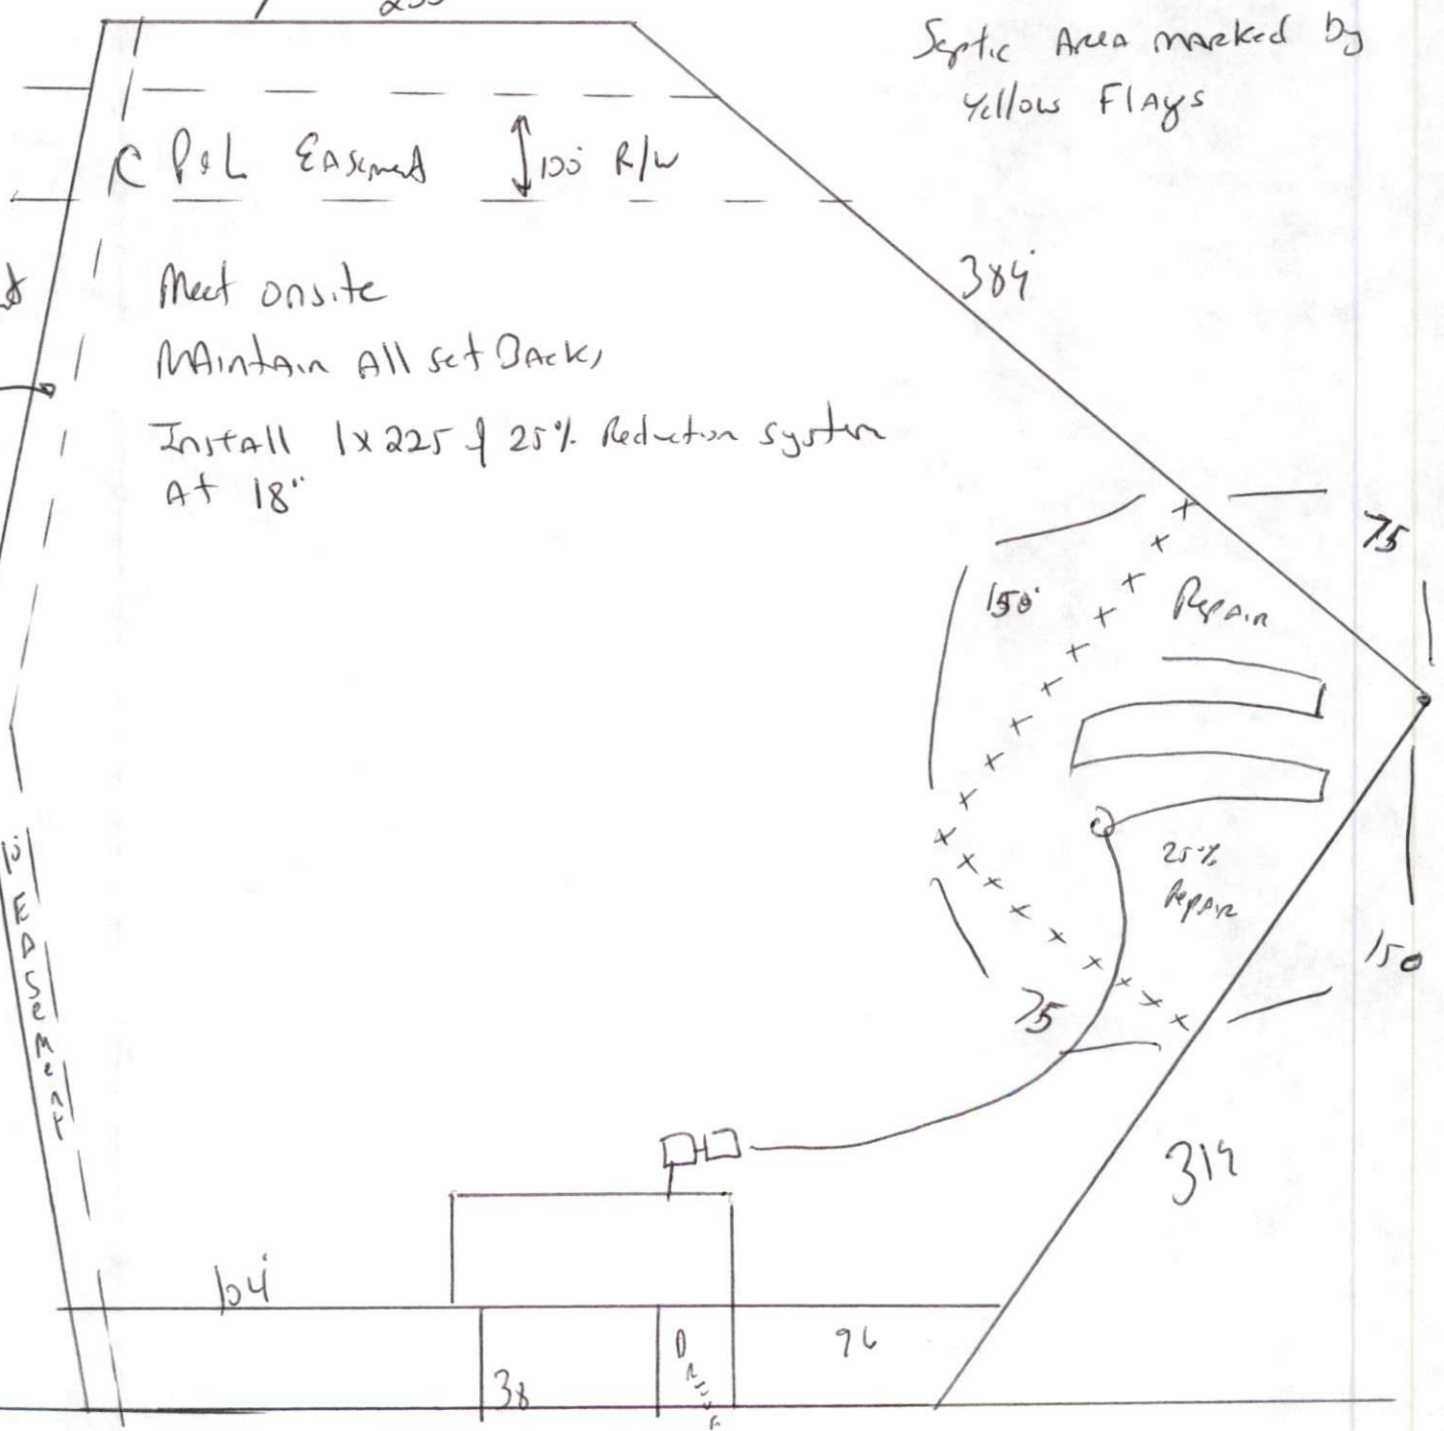 Septic Area marked by
Yellow Flags
CP&L Easement 100' R/W
384'
Meet onsite
Maintain All set Backs
Install 1x225 of 25% Reduction system
At 18"
75
150'
Repair
25%
Repair
150
75
10' EASEMENT
319
104'
96
38
Drive